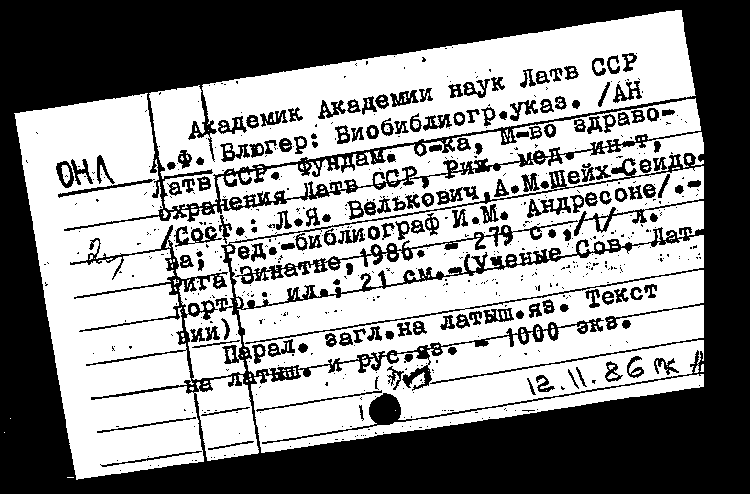 Академик Академии наук Латв ССР
А.Ф. Блюгер: Биобиблиогр.указ. /АН
ОНЛ
Латв ССР. Фундам. б-ка, М-во здраво-
охранения Латв ССР, Риж. мед. ин-т,
/Сост.: Л.Я. Велькович,А.М.Шейх-Сеидо-
2,
ва; Ред.-библиограф И.М. Андресоне/.-
Рига:Зинатне,1986. - 279 с.,/1/ л.
портр.: ил.; 21 см.-(Ученые Сов. Лат-
вии).
Парал. загл.на латыш.яз. Текст
на латыш. и рус.яз. - 1000 экз.
12.11.86